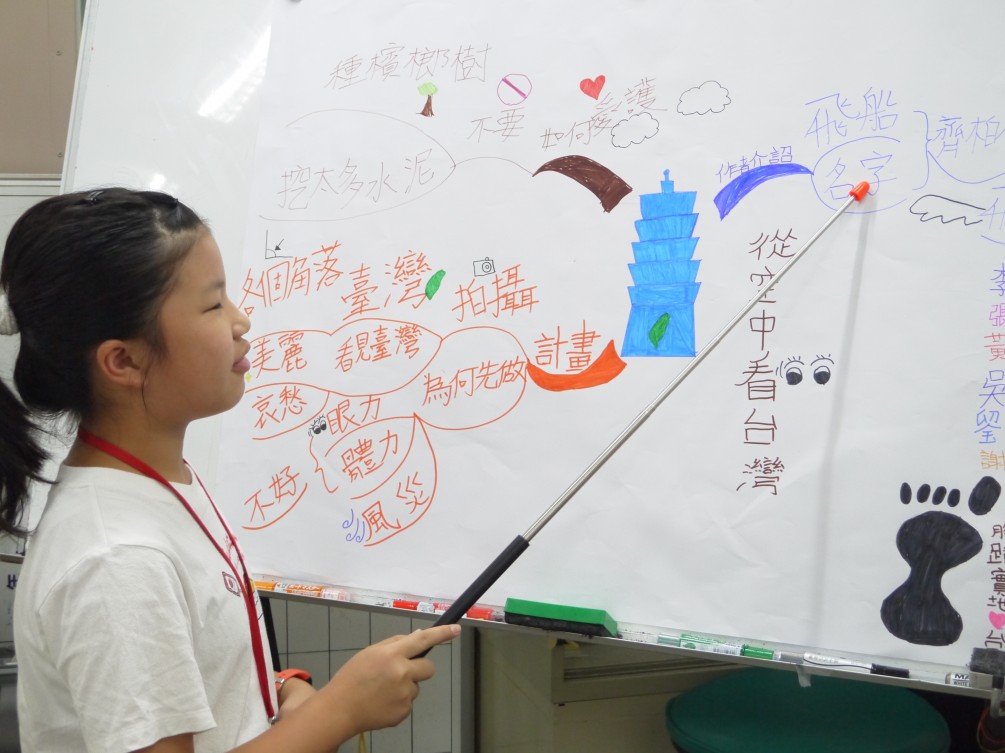 種檳榔樹
不要
如何愛護
挖太多水泥
作者介紹
飛船
名字
齊柏
各個角落
臺灣
拍攝
美麗
看見臺灣
計畫
為何先做
哀愁
眼力
體力
不好
風災
從空中看台灣
李
張
黃
吳
瑩
謝
腳踏實地
台